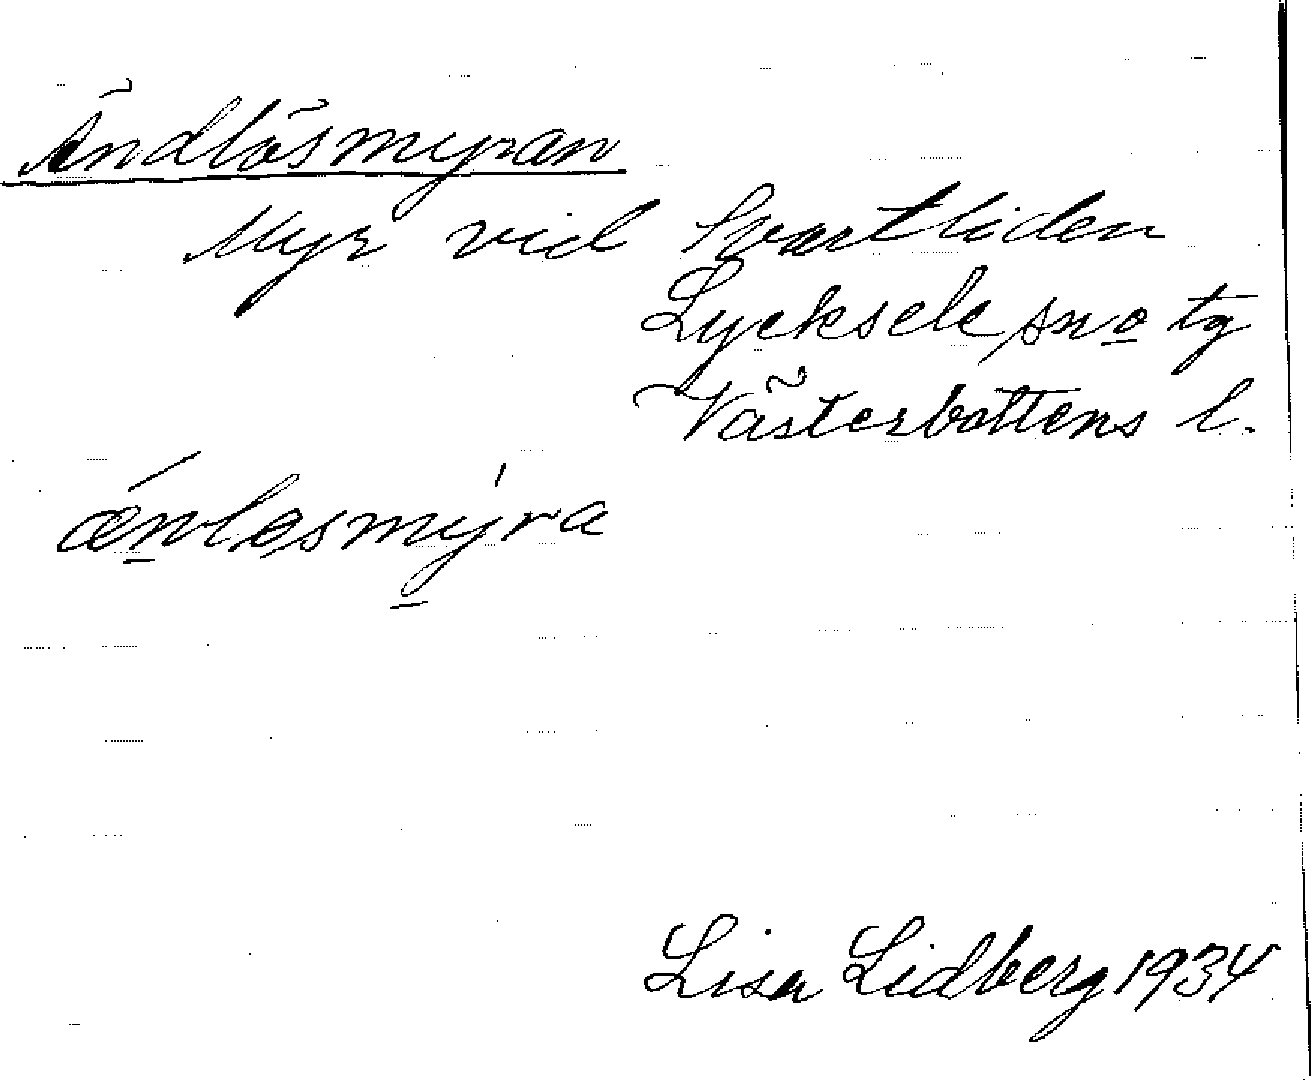 Ändlösmyran
Myr vid Svartliden
Lycksele sn o tg
Västerbottens l.
ænløsmýra
Lisa Lidberg 1934